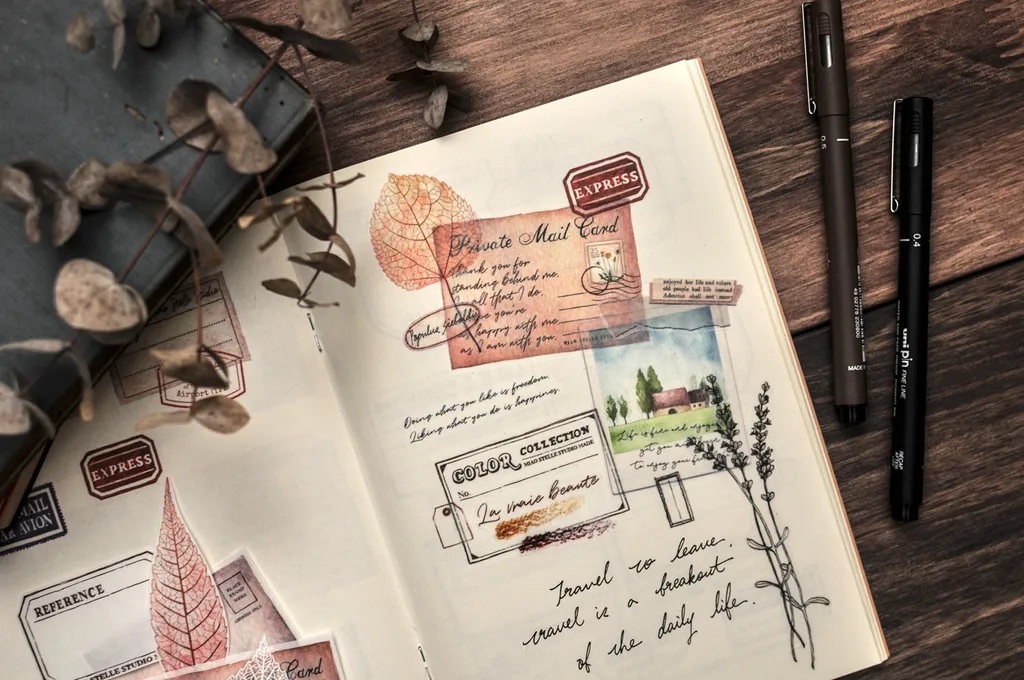 EXPRESS
Private Mail Card
Thank you for
standing behind me
in all that I do.
you're
happy with me
as I am with you.
enjoyed her life and values
old people had life instead
America shall not
Doing what you like is freedom.
Liking what you do is happiness.
Life is fine and enjoy
get you
to enjoy your
COLOR COLLECTION
MIAO STELLE STUDIO MADE
No.
La vraie Beauté
Travel to leave.
travel is a breakout
of the daily life.
Airport
EXPRESS
MAIL
PAR AVION
REFERENCE
STELLE STUDIO
Card
0.5
MADE
0.4
uni pin FINE LINE